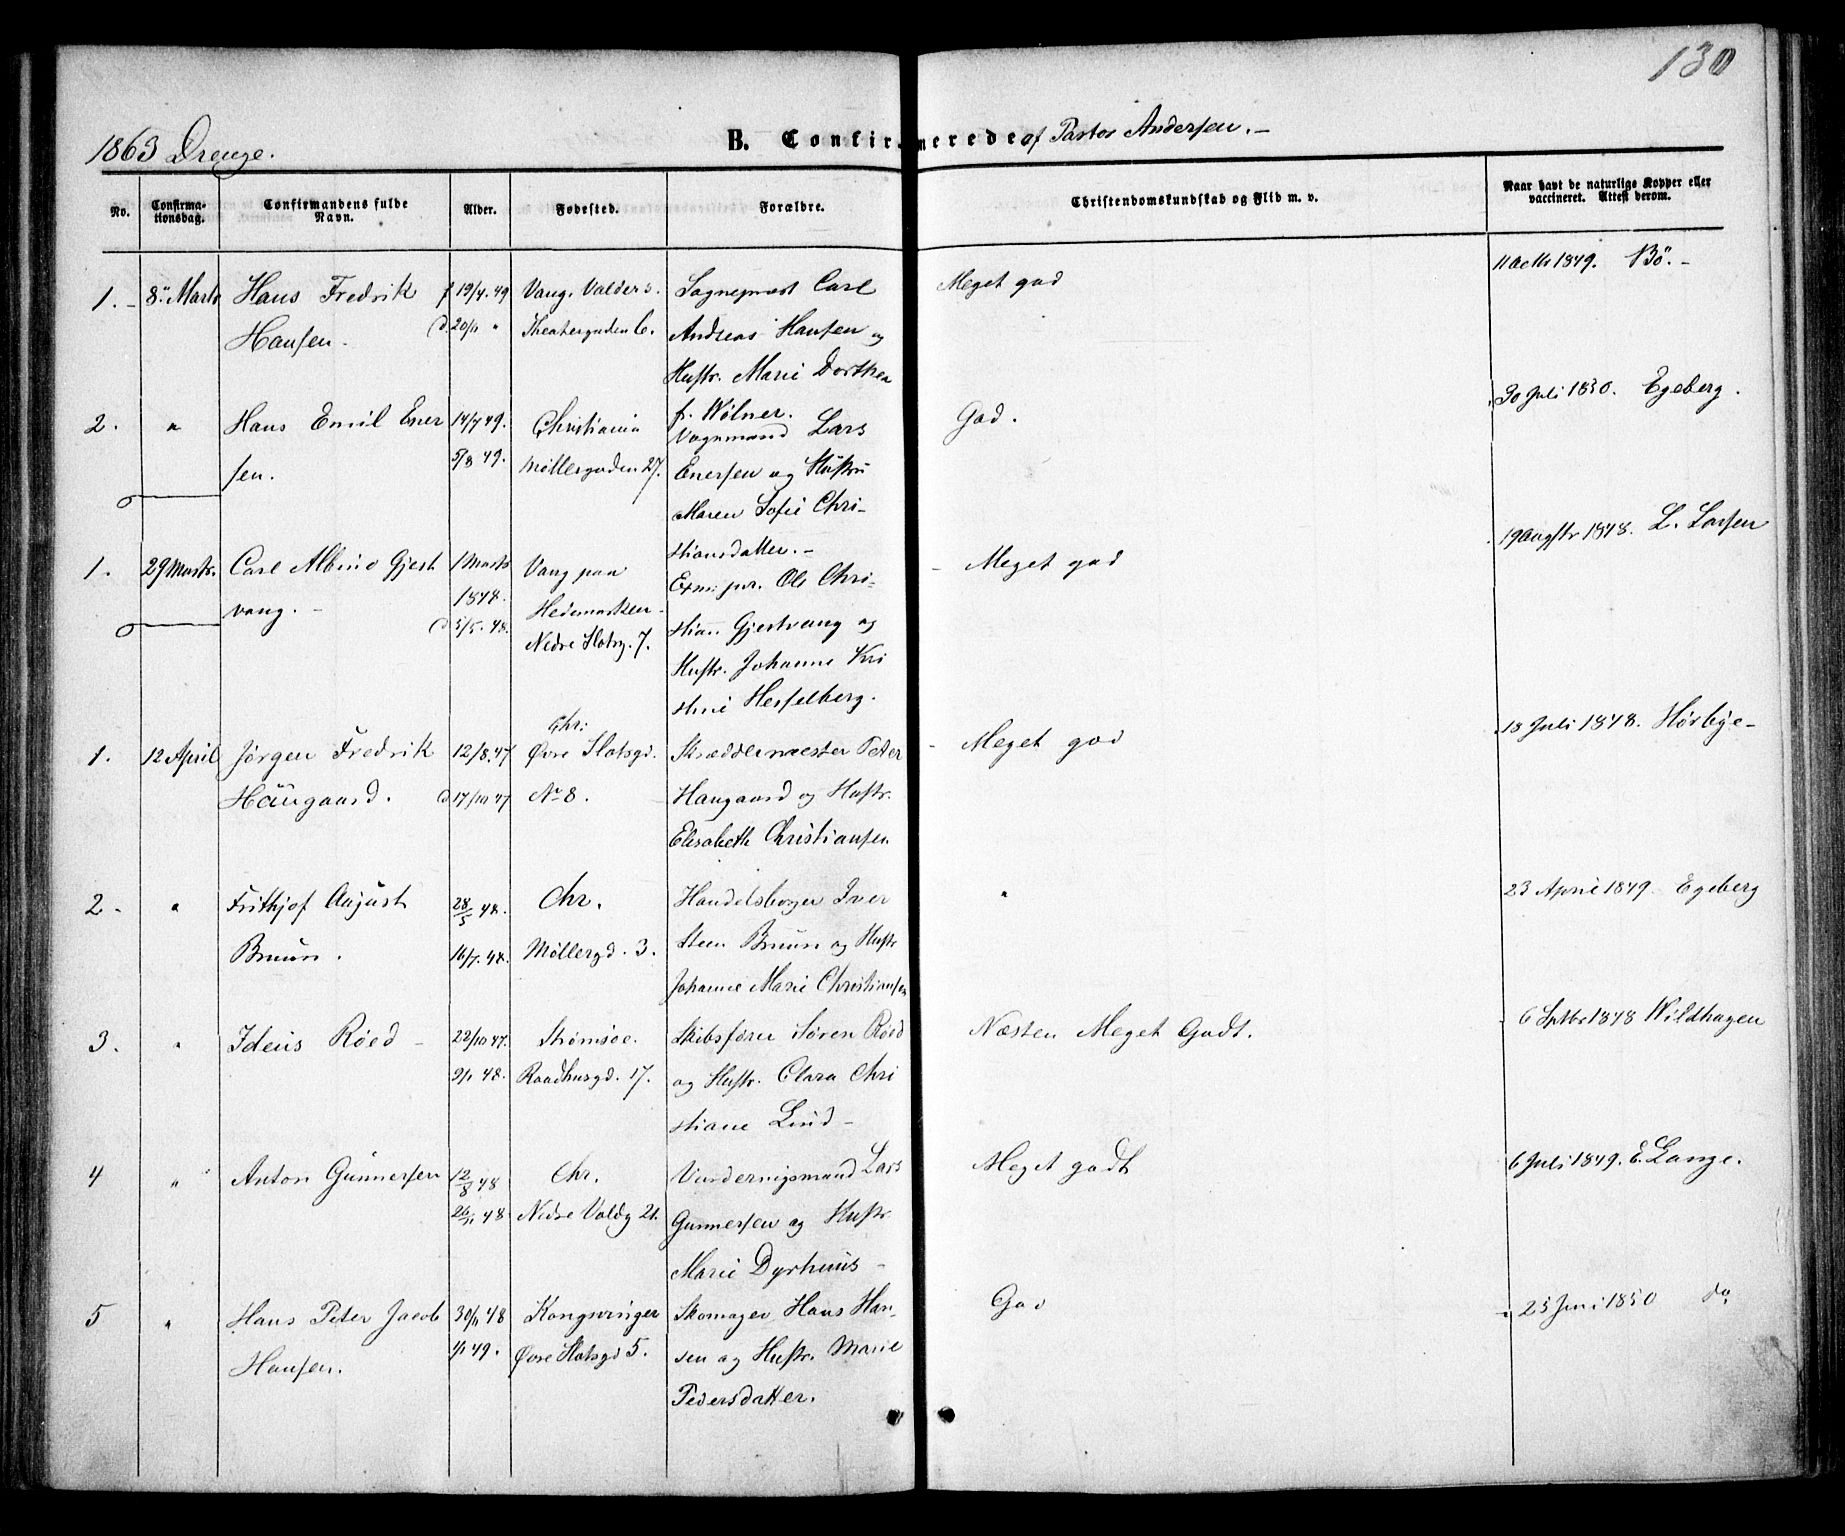 130
1863 Drenge.
B. Confirmerede af Pastor Andersen. –
No.
Confirma-
tionsdag.
Confirmandens fulde
Navn.
Alder.
Fødested.
Forældre.
Christendomskundskab og Flid m. v.
Naar havt de naturlige Kopper eller
vaccineret. Attest derom.
1. – 8de Marts Hans Fredrik f 19/4. 49 Vang. Valders. Sognepræst Carl Meget god 11 Octbr 1849. Bö. –
Hansen. d. 20/11 " Theatergaden 6. Andreas Hansen og
Hustr. Marie Dorthea
f. Wølner.
2. " Hans Emil Ener 14/7 49. Christiania Vognmand Lars God. 30 Juli 1850. Egeberg.
sen. 5/8 49. Møllergaden 27. Enersen og Hustru
Maren Sofie Chri-
stiansdatter. –
1. 29 Marts. Carl Albino Gjest 1 Marts Vang paa Exm: pr. Ole Chri- Meget god 19 Augstr 1848. L. Larsen
vang. – 1848. Hedemarken. stian Gjestvang og
d 5/5. 48. Nedre Slotsg. 7. Hustr. Johanne Kri
stine Hesselberg.
1. 12 April Jørgen Fredrik 12/8. 47 Chr: Øvre Slotsgd. Skræddermester Peter Meget god 18 Juli 1848. Hörbye –
Haugaard. d. 17/10 47 No 8. Haugaard og Hustr.
Elisabeth Christiansen
2. " Frithjof August 28/5 48. Chr. Handelsborger Iver " 23 April 1849. Egeberg
Bruun. 16/7. 48. Møllergd. 3. Steen Bruun og Hustr
Johanne Marie Christiansen
3. " Ideus Röed – 22/10 47. Strømsöe. Skibsfører Sören Röed Næsten Meget Godt. 6 Sptbr 1848 Wildhagen
9/1 48. Raadhusgd. 17. og Hustr. Clara Chri
stiane Lind –
4 " Anton Gunnersen 12/8 48 Chr. Vurderingsmand Lars Meget godt 6 Juli 1849. E. Lange.
26/11 48 Nedre Voldg 21. Gunnersen og Hustr
Marie Dyrhuus –
5 " Hans Peter Jacob 30/11 48 Kongsvinger Skomager Hans Han- God 25 Juni 1850 do
Hansen. 1/1 49. Øvre Slotsgd 5. sen og Hustr. Marie
Pedersdatter.